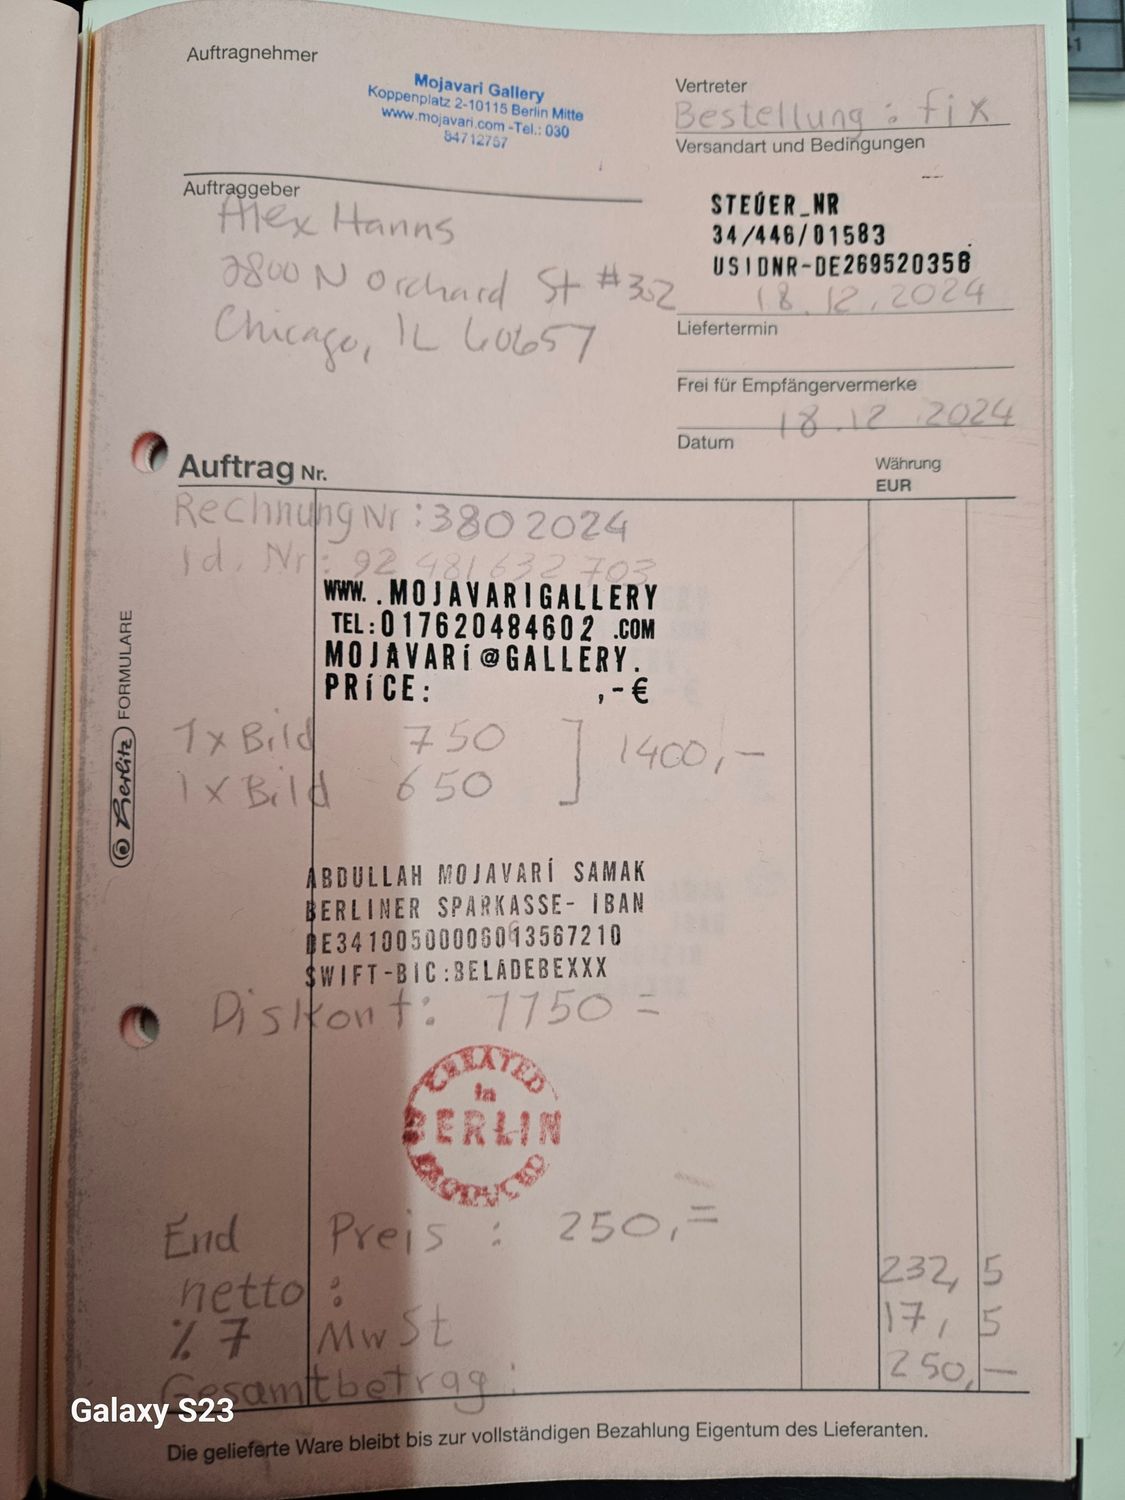 Auftragnehmer
Mojavari Gallery
Koppenplatz 2-10115 Berlin Mitte
www.mojavari.com -Tel.: 030
84712757
Vertreter
Bestellung : fix
Versandart und Bedingungen
Auftraggeber
Alex Hanns
2800 N Orchard St #302
Chicago, IL 60657
STEÚER_NR
34/446/01583
USIDNR-DE269520358
18.12.2024
Liefertermin
Frei für Empfängervermerke
18.12.2024
Datum
Auftrag Nr.
Währung
EUR
Rechnung Nr : 380 2024
Id. Nr : 92 481 632 703
WWW. .MOJAVARIGALLERY
TEL:017620484602 .COM
MOJAVARÍ@GALLERY.
PRÍCE: ,-€
1x Bild 750
1x Bild 650
] 1400,-
ABDULLAH MOJAVARÍ SAMAK
BERLINER SPARKASSE- IBAN
DE34100500006013567210
SWIFT-BIC:BELADEBEXXX
Diskont: 1150 =
CREATED
in
BERLIN
PRODUCED
End Preis : 250,=
netto : 232,5
% 7 MwSt 17,5
Gesamtbetrag : 250,—
Berlitz FORMULARE
Die gelieferte Ware bleibt bis zur vollständigen Bezahlung Eigentum des Lieferanten.
Galaxy S23